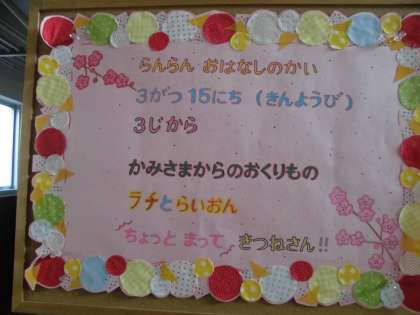 らんらん おはなしのかい
3がつ 15にち (きんようび)
3じから
かみさまからのおくりもの
ラチとらいおん
ちょっと まって きつねさん!!